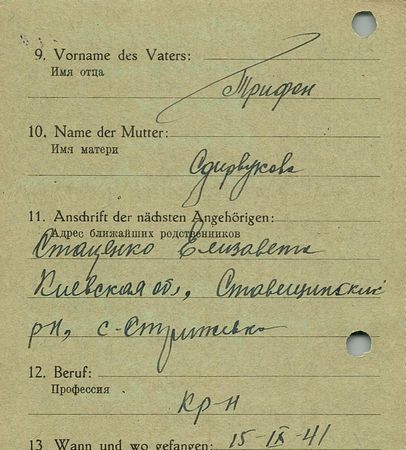 9. Vorname des Vaters:
Имя отца
Трифон
10. Name der Mutter:
Имя матери
11. Anschrift der nächsten Angehörigen:
Адрес ближайших родственников
Стаценко Елизавета
Киевская обл, Ставищанский
рн, с-Стрижевка
12. Beruf:
Профессия
кр-н
13. Wann und wo gefangen: 15-IX-41